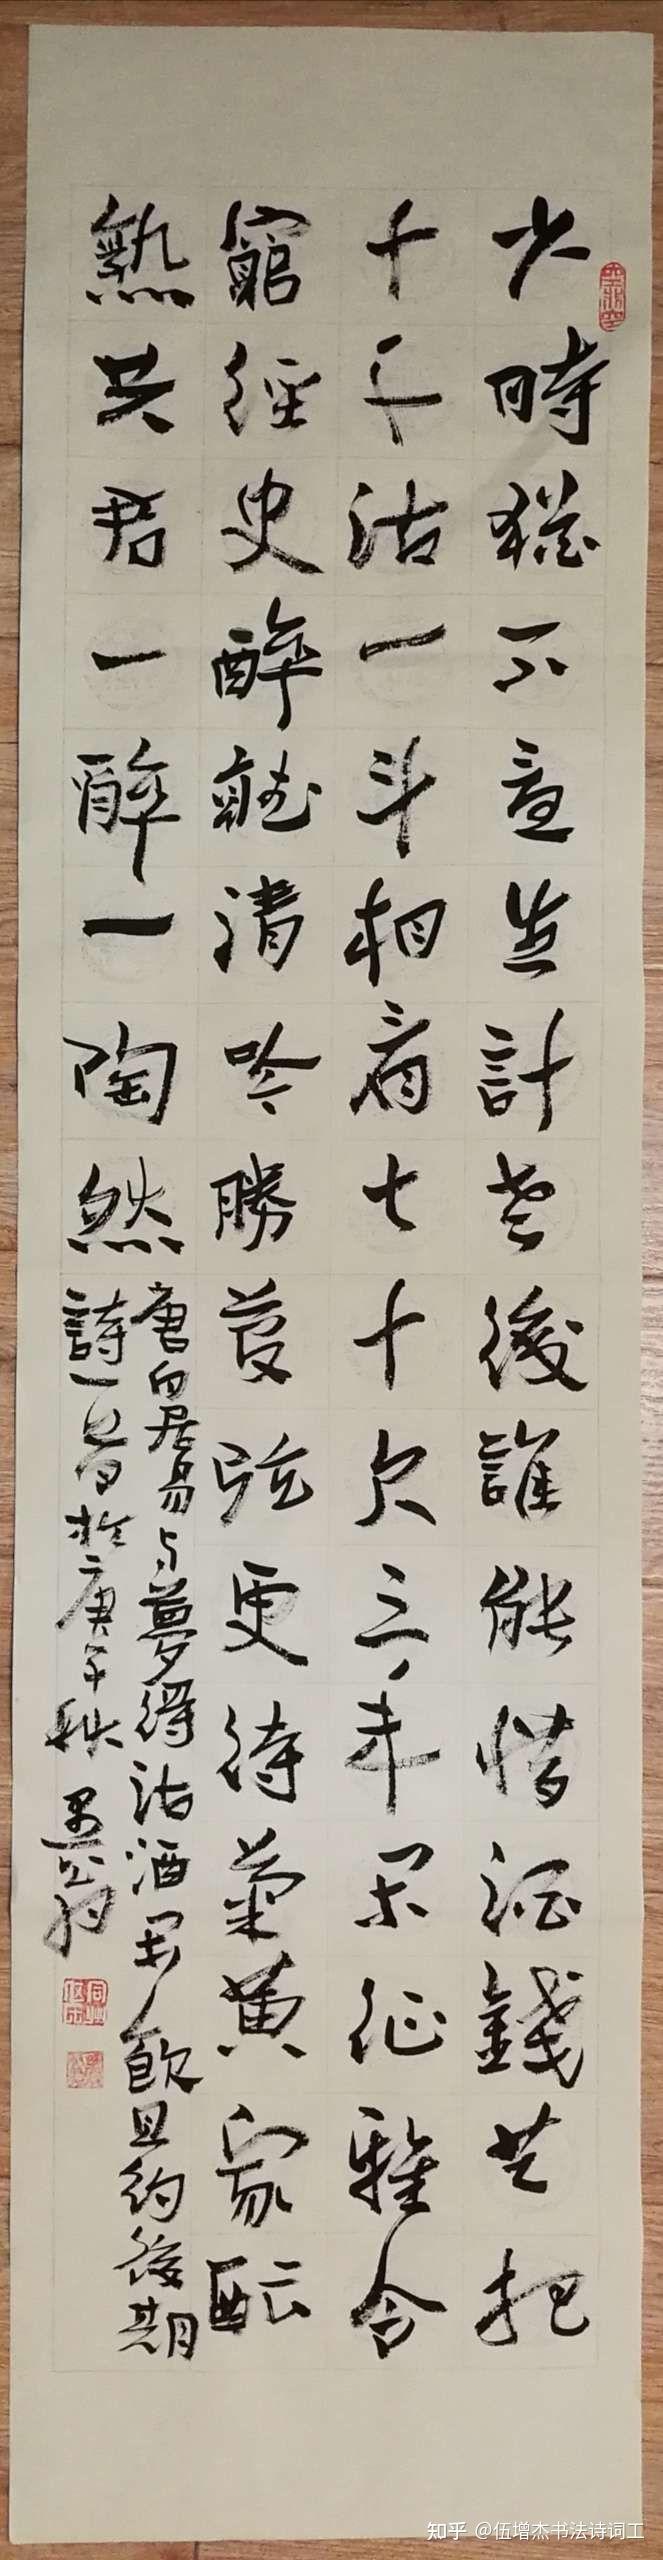 少時猶不憂生計老後誰能惜酒錢共把
十千沽一斗相看七十欠三年閑征雅令
窮經史醉聽清吟勝管弦更待菊黄家酝
熟共君一醉一陶然
唐白居易与夢得沽酒閑飲且約後期
詩一首於庚子秋
知乎 @伍增杰书法诗词工